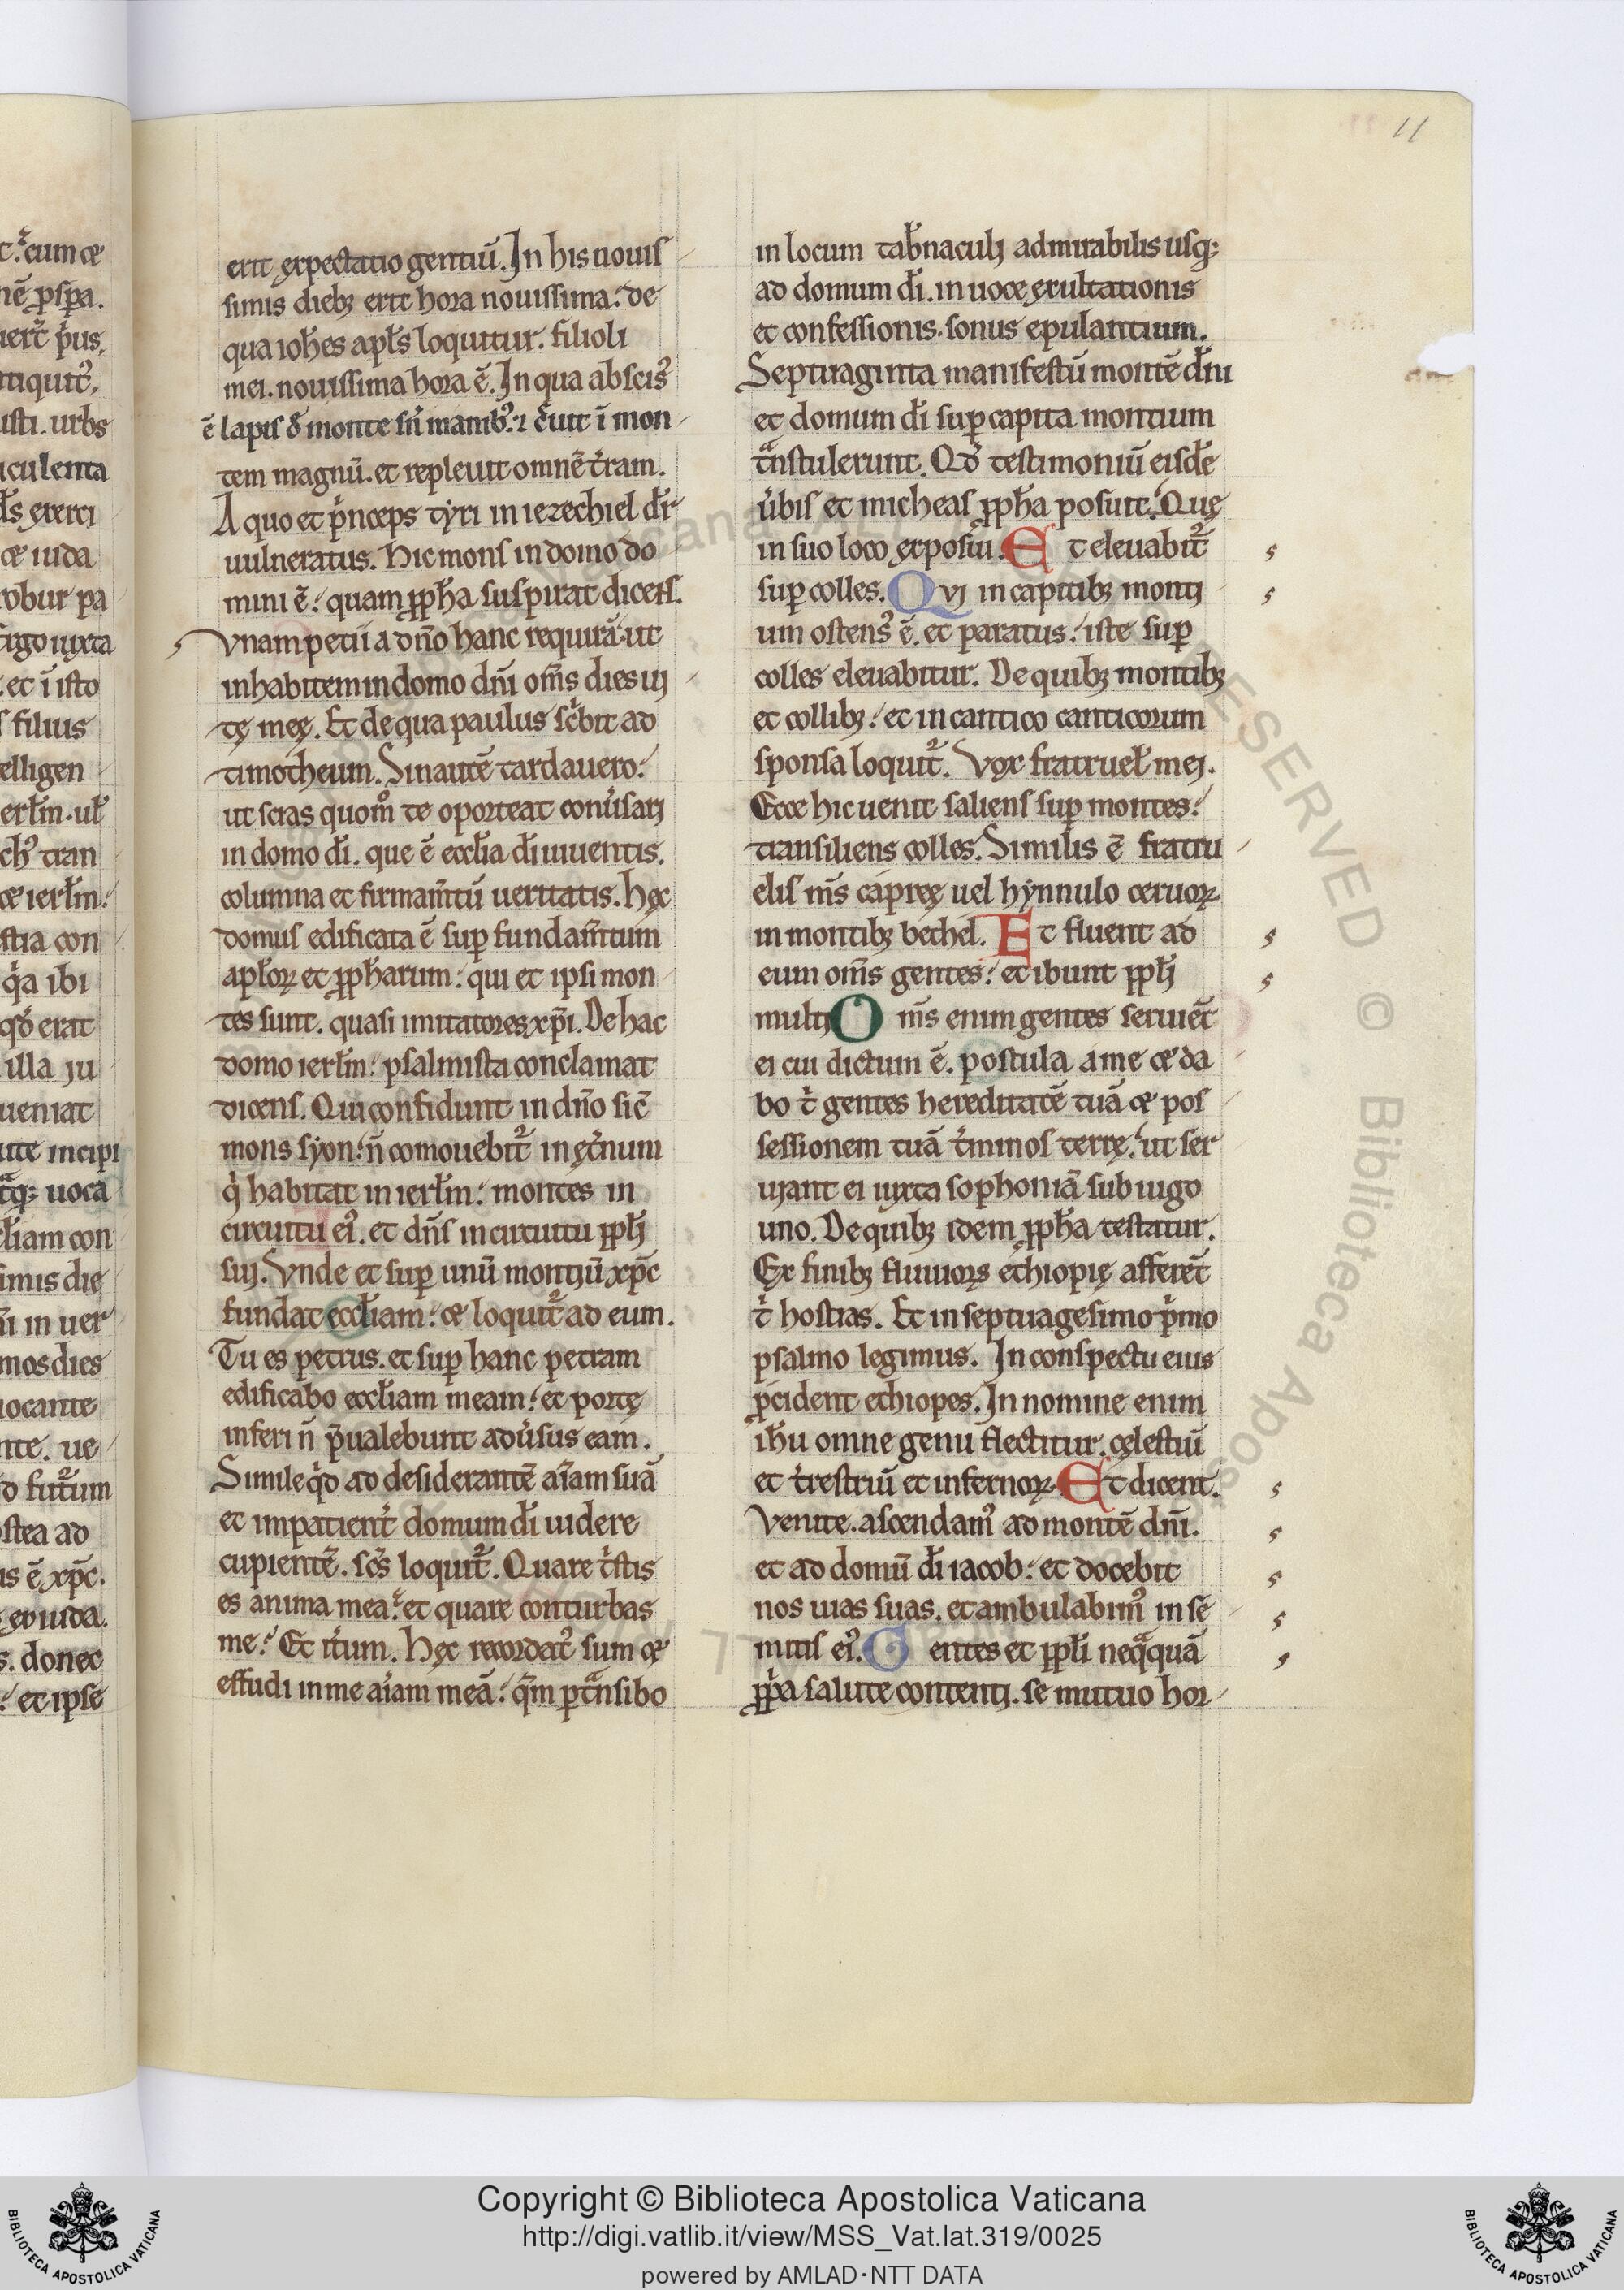 11
erit expectatio gentiū. In his nouis
simis dieb; erit hora nouissima: de
qua ioh̄es apl̄s loquitur. filioli
mei. nouissima hora ē. In qua abscis᷒
ē lapis de monte sn̄ manib᷒: ⁊ c̄uit ī mon
tem magnū. et repleuit omnē t̄ram.
A quo et p̄nceps tyri in iezechiel dr̄
uulneratus. Hic mons in domo do
mini ē: quam ꝓph̄a suspirat dicens.
Vnam petii a dn̄o hanc requirā: ut
inhabitem in domo dn̄i om̄s dies ui
tę meę. Et de qua paulus sc̄bit ad
timotheum. Sin autē tardauero:
ut scias quom̊ te oporteat conu̓sari
in domo dī. que ē eccl̄ia dī uiuentis.
columna et firmam̄tū ueritatis. Hęc
domus edificata ē suꝑ fundam̄tum
apl̄oꝝ et ꝓph̄arum: qui et ipsi mon
tes sunt. quasi imitatores xp̄i. De hac
domo ierl̄m: psalmista conclamat
dicens. Qui confidunt in dn̄o sic̄
mons syon: n̄ comouebit᷒ in ęt̓num
q̓ habitat in ierl̄m: montes in
circuitu ei᷒. et dn̄s in circuitu ppl̄i
sui. Vnde et suꝑ unū montiū xp̄c
fundat eccl̄iam: & loquit᷒ ad eum.
Tu es petrus. et suꝑ hanc petram
edificabo eccl̄iam meam: et portę
inferi n̄ p̄ualebunt adu̓sus eam.
Simile q̓d ad desiderantē aīam suā
et impatient̓ domum dī uidere
cupientē. sc̄s loquit᷒. Quare t̓stis
es anima mea: et quare conturbas
me: Et it̓um. Hęc recordat᷒ sum &
effudi in me aīam meā: qm̄ ꝑtn̄sibo
in locum tab̄naculi admirabilis usq;
ad domum dī. in uoce exultationis
et confessionis. sonus epulantium.
Septuaginta manifestū montē dn̄i
et domum dī suꝑ capita montium
tn̄stulerunt. Qd̓ testimoniū eisdē
u̓bis et micheas ꝓph̄a posuit. Quę
in suo loco exposui. Et eleuabit᷒
suꝑ colles. Qvi in capitib; monti
um ostens᷒ ē. et paratus: iste suꝑ
colles eleuabitur. De quib; montib;
et collib;: et in cantico canticorum
sponsa loquit᷒. Vox fratruel̄ mei.
Ecce hic uenit saliens suꝑ montes:
transiliens colles. Similis ē fratru
elis m̄s capreę uel hynnulo ceruoꝝ
in montib; bethel. Et fluent ad
eum om̄s gentes: et ibunt ppl̄i
multi Om̄s enim gentes seruēt
ei cui dictum ē. postula a me & da
bo t̓ gentes hereditatē tuā & pos
sessionem tuā t̓minos terrę: ut ser
uiant ei iuxta sophoniā sub iugo
uno. De quib; idem ꝓph̄a testatur.
Ex finib; fluuioꝝ ethiopię afferēt
t̓ hostias. Et in septuagesimo p̓mo
psalmo legimus. In conspectu eius
p̄cident ethiopes. In nomine enim
ih̄u omne genu flectitur. cęlestiū
et t̓restriū et infernoꝝ. Et dicent.
Venite. ascendam᷒ ad montē dn̄i.
et ad domū dī iacob: et docebit
nos uias suas. et ambulabim᷒ in se
mitis ei᷒. Gentes et ppl̄i neq̄quā
ꝓp̓a salute contenti. se mutuo hor
Copyright © Biblioteca Apostolica Vaticana
http://digi.vatlib.it/view/MSS_Vat.lat.319/0025
powered by AMLAD·NTT DATA
BIBLIOTECA APOSTOLICA VATICANA
BIBLIOTECA APOSTOLICA VATICANA